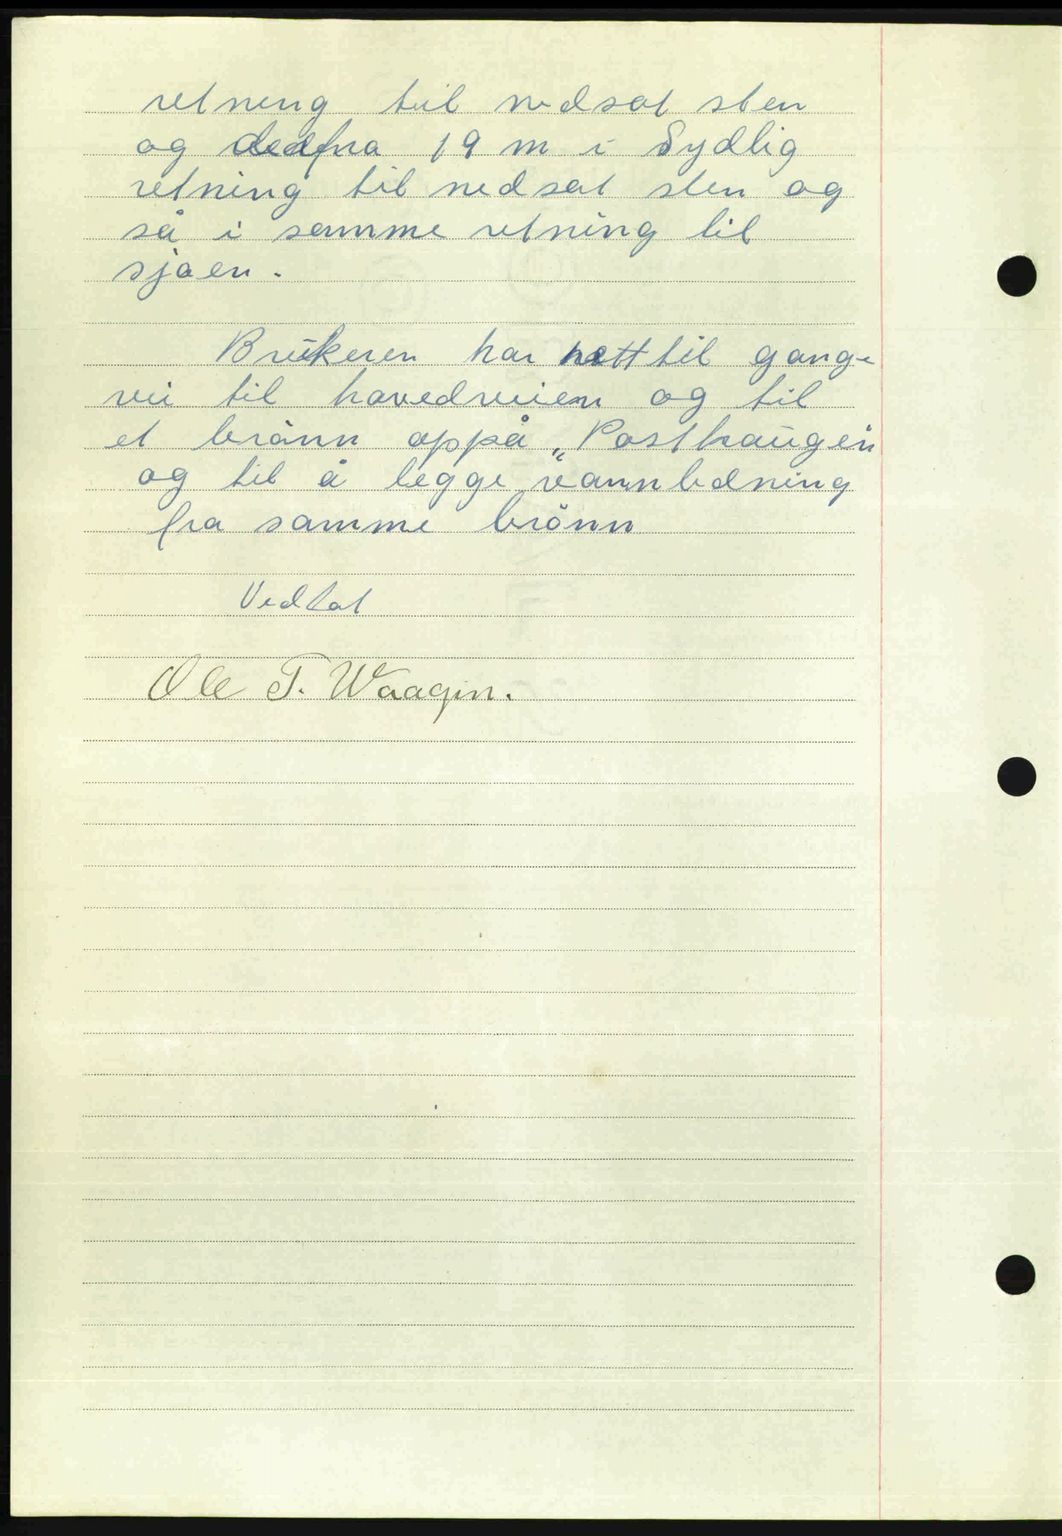 retning til nedsat sten
og dedfra 19 m i Sydlig
retning til nedsat sten og
så i samme retning til
sjøen.
Brukeren har rett til gang-
vei til hovedveien og til
et brönn oppå „Posthaugen"
og til å legge vannledning
fra samme brönn
Vedtat
Ole T. Waagin.